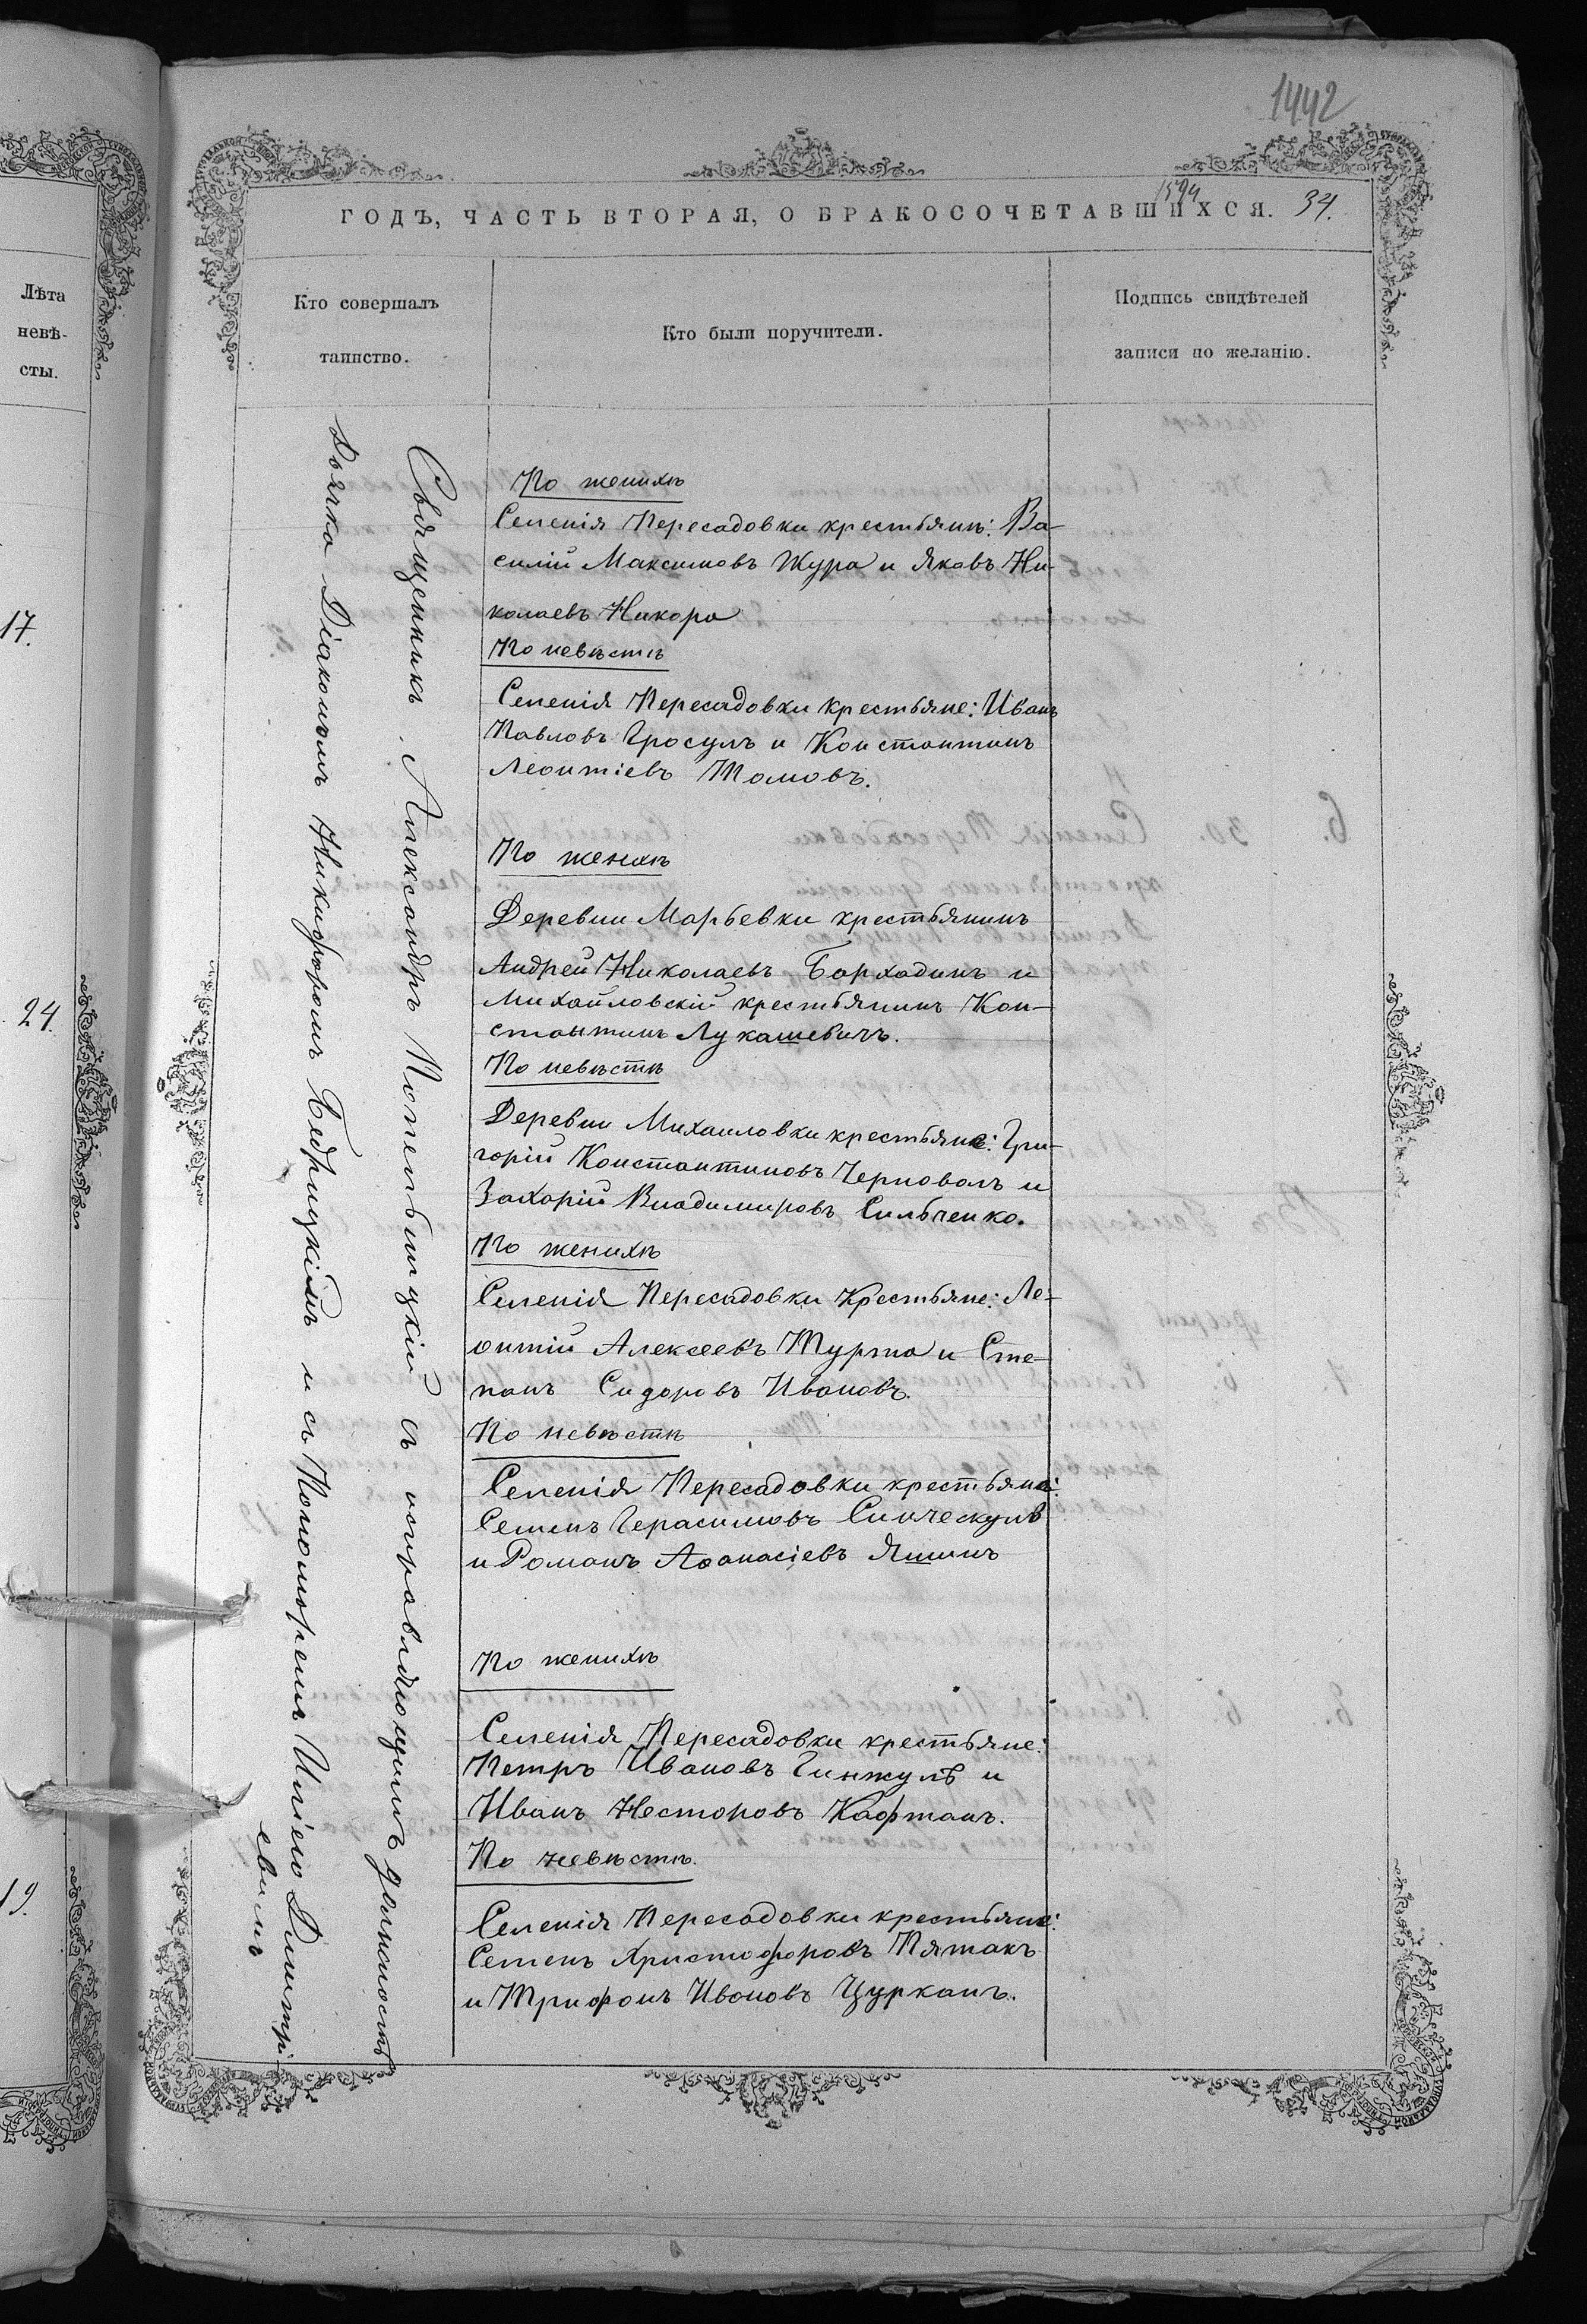 1442
1594
ГОДЪ, ЧАСТЬ ВТОРАЯ, О БРАКОСОЧЕТАВШИХСЯ. 34.
Лѣта
невѣ-
сты.
17.
24.
19.
Кто совершалъ
таинство.
Кто были поручители.
Подпись свидѣтелей
записи по желанію.
Священникъ Александръ Потельбицкій съ исправляющимъ должность
дьячка Діакономъ Никифоромъ Бедрицкимъ и съ Пономоремъ Иліею Димитрі-
евымъ
По женихѣ
Селенія Пересадовки крестьянѣ: Ва-
силій Максимовъ Жура и Яковъ Ни-
колаевъ Никора
По невѣстѣ
Селенія Пересадовки крестьяне: Иванъ
Павловъ Гросулъ и Константинъ
Леонтіевъ Томовъ.
По женихѣ
Деревни Марьевки крестьянинъ
Андрей Николаевъ Бархадинъ и
Михайловскій крестьянинъ Кон-
стантинъ Лукашевичъ.
По невѣстѣ
Деревни Михаиловки крестьяне: Гри-
горій Константиновъ Черноволъ и
Захарій Владимировъ Сильченко.
По женихѣ
Селенія Пересадовки Крестьяне: Ле-
онтій Алексеевъ Турта и Сте-
панъ Сидоровъ Ивановъ.
По невѣстѣ
Селенія Пересадовки крестьяне:
Семенъ Герасимовъ Синческулъ
и Романъ Аѳанасіевъ Яшинъ
По женихѣ
Селенія Пересадовки крестьяне:
Петръ Ивановъ Гинжулъ и
Иванъ Несторовъ Кафтанъ.
По невѣстѣ.
Селенія Пересадовки крестьяне:
Семенъ Христофоровъ Пятакъ
и Трифонъ Ивановъ Цурканъ.